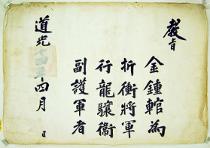 教旨
金鍾䭾為
折衝將軍
行龍驤衛
副護軍者
道光 年四月 日